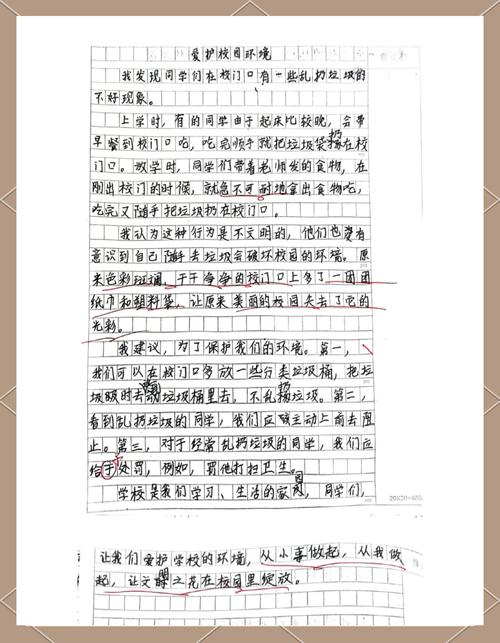 爱护校园环境
我发现同学们在校门口有一些乱扔垃圾的
不好现象。
上学时，有的同学由于起床比较晚，会带
早餐到校门口吃，吃完顺手就把垃圾袋扔在校
门口。放学时，同学们带着老师发的食物，在
刚出校门的时候，就急不可耐地拿出食物吃，
吃完又随手把垃圾扔在校门口。
我认为这种行为是不文明的，他们也没有
意识到自己随手丢垃圾会破坏校园的环境。原
来色彩斑斓、干干净净的校门口上多了一团团
纸巾和塑料袋，让原来美丽的校园失去了它的
光彩。
我建议，为了保护我们的环境。第一，
我们可以在校门口多放一些分类垃圾桶，把垃
圾及时去垃圾桶里去，不乱扔垃圾。第二，
看到乱扔垃圾的同学，我们应该主动上前去阻
止。第三，对于经常乱扔垃圾的同学，我们应
给予处罚，例如，罚他打扫卫生。
学校是我们学习、生活的家园，同学们，
20X20=400
让我们爱护学校的环境，从小事做起，从我做
起，让文明之花在校园里绽放。